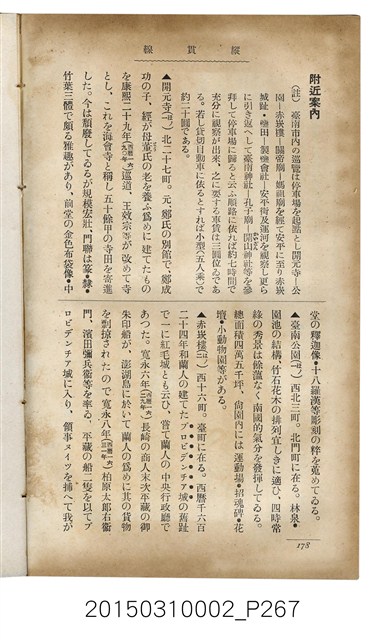 縱貫線
附近案內
（註）臺南市內の巡覽は停車場を起點とし開元寺―公
園―赤崁樓―關帝廟―媽祖廟を經て安平に至り赤崁
城趾・鹽田・製鹽會社―安平街及運河を視察し更ら
に引き返へして臺南神社―孔子廟―開山神社等を參
拜して停車場に歸ると云ふ順路に依れば約七時間で
充分に視察が出來、之に要する車賃は三圓位ゐであ
る。若し貸切自動車に依るとすれば小型（五人乘）で
約二十圓である。
▲開元寺 北二十七町。元、鄭氏の別館で、鄭成
功の子、經が母董氏の老を養ふ爲めに建てたもの
を康熙二十九年 巡道、王效宗等が改めて寺
とし、これを海會寺と稱し五十餘甲の寺田を寄進
した。今は頽廢してゐるが規模宏壯、門聯は篆・隸・
竹葉三體で頗る雅趣があり、前堂の金色布袋像・中
堂の釋迦像・十八羅漢等彫刻の粹を蒐めてゐる。
▲臺南公園 西北三町。北門町に在る。林泉・
園池の結構、竹石花木の排列宜しきに適ひ、四時常
綠の秀景は餘薀なく南國的氣分を發揮してゐる。
總面積四萬五千坪、尙園內には運動場・招魂碑・花
壇・小動物園等がある。
▲赤崁樓 西十六町。臺町に在る。西曆千六百
二十四年和蘭人の建てたプロビデンチア城の舊趾
で一に紅毛城とも云ひ、嘗て蘭人の中央行政廳で
あつた。寬永六年 長崎の商人末次平藏の御
朱印船が、澎湖島に於いて蘭人の爲めに其の貨物
を剽掠されたので寬永八年 柏原太郎右衞
門、濱田彌兵衞等を率る、平藏の船二隻を以てプ
ロビデンチア城に入り、領事ノイツを捕へて我が
178
20150310002_P267